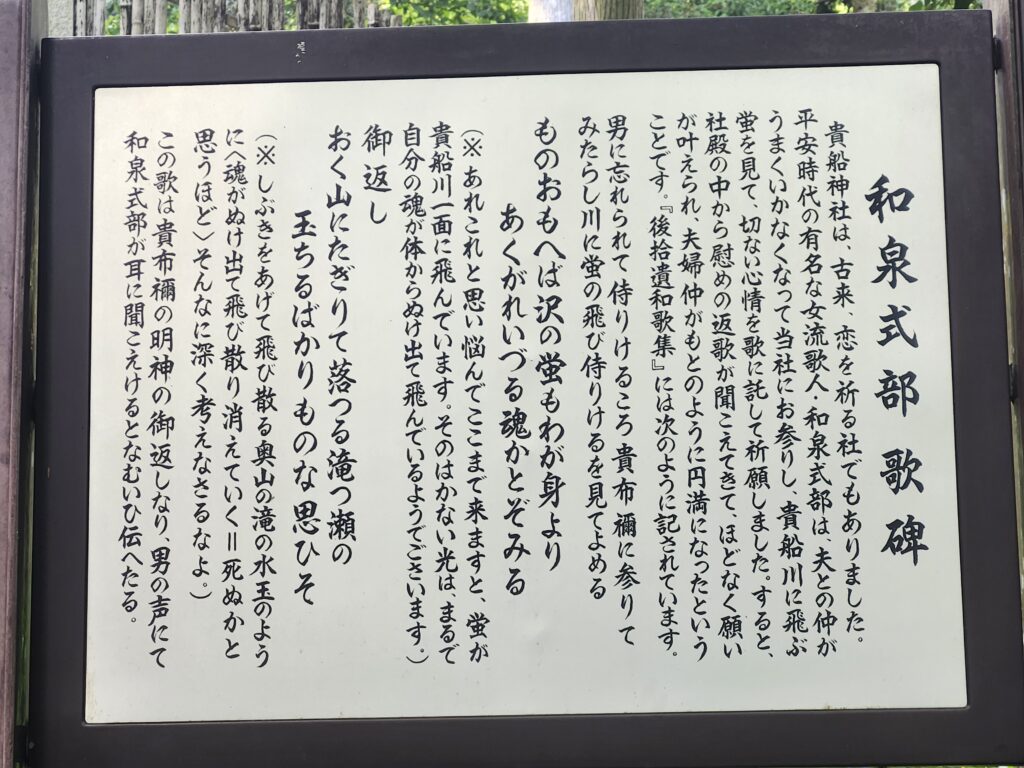 和泉式部歌碑
貴船神社は、古来、恋を祈る社でもありました。
平安時代の有名な女流歌人・和泉式部は、夫との仲が
うまくいかなくなって当社にお参りし、貴船川に飛ぶ
蛍を見て、切ない心情を歌に託して祈願しました。すると、
社殿の中から慰めの返歌が聞こえてきて、ほどなく願い
が叶えられ、夫婦仲がもとのように円満になったという
ことです。『後拾遺和歌集』には次のように記されています。
男に忘れられて侍りけるころ貴布禰に参りて
みたらし川に蛍の飛び侍りけるを見てよめる
ものおもへば沢の蛍もわが身より
あくがれいづる魂かとぞみる
（※あれこれと思い悩んでここまで来ますと、蛍が
貴船川一面に飛んでいます。そのはかない光は、まるで
自分の魂が体からぬけ出て飛んでいるようでございます。）
御返し
おく山にたぎりて落つる滝つ瀬の
玉ちるばかりものな思ひそ
（※しぶきをあげて飛び散る奥山の滝の水玉のよう
に〈魂がぬけ出て飛び散り消えていく＝死ぬかと
思うほど〉そんなに深く考えなさるなよ。）
この歌は貴布禰の明神の御返しなり、男の声にて
和泉式部が耳に聞こえけるとなむいひ伝へたる。